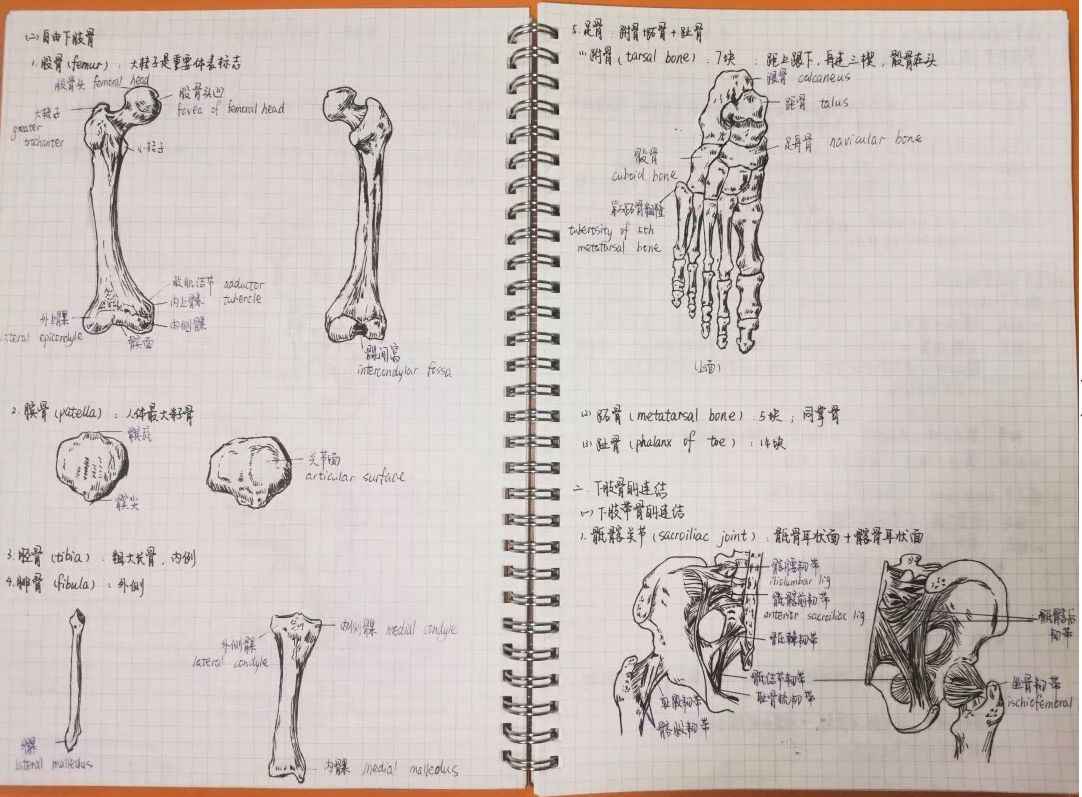 (二) 自由下肢骨
1. 股骨 (femur)：大转子是重要体表标志
股骨头 femoral head
股骨头凹
fovea of femoral head
大转子
greater
trochanter
小转子
收肌结节 adductor
tubercle
内上髁
外上髁
lateral epicondyle
内侧髁
髌面
髁间窝
intercondylar fossa
2. 髌骨 (patella)：人体最大籽骨
髌底
关节面
articular surface
髌尖
3. 胫骨 (tibia)：粗大长骨，内侧
4. 腓骨 (fibula)：外侧
内侧髁 medial condyle
外侧髁
lateral condyle
lateral malleolus
内踝 medial malleolus
5. 足骨：跗骨+跖骨+趾骨
(1) 跗骨 (tarsal bone)：7块：距上跟下，舟连三楔，骰骨在外
跟骨 calcaneus
距骨 talus
足舟骨 navicular bone
骰骨
cuboid bone
第5跖骨粗隆
tuberosity of 5th
metatarsal bone
(上面)
(2) 跖骨 (metatarsal bone)：5块；同掌骨
(3) 趾骨 (phalanx of toe)：14块
二. 下肢骨的连结
(一) 下肢带骨的连结
1. 骶髂关节 (sacroiliac joint)：骶骨耳状面+髂骨耳状面
髂腰韧带
iliolumbar lig
骶髂前韧带
anterior sacroiliac lig
骶棘韧带
骶结节韧带
耻骨梳韧带
耻股韧带
髂股韧带
骶髂后
韧带
坐骨韧带
ischiofemoral